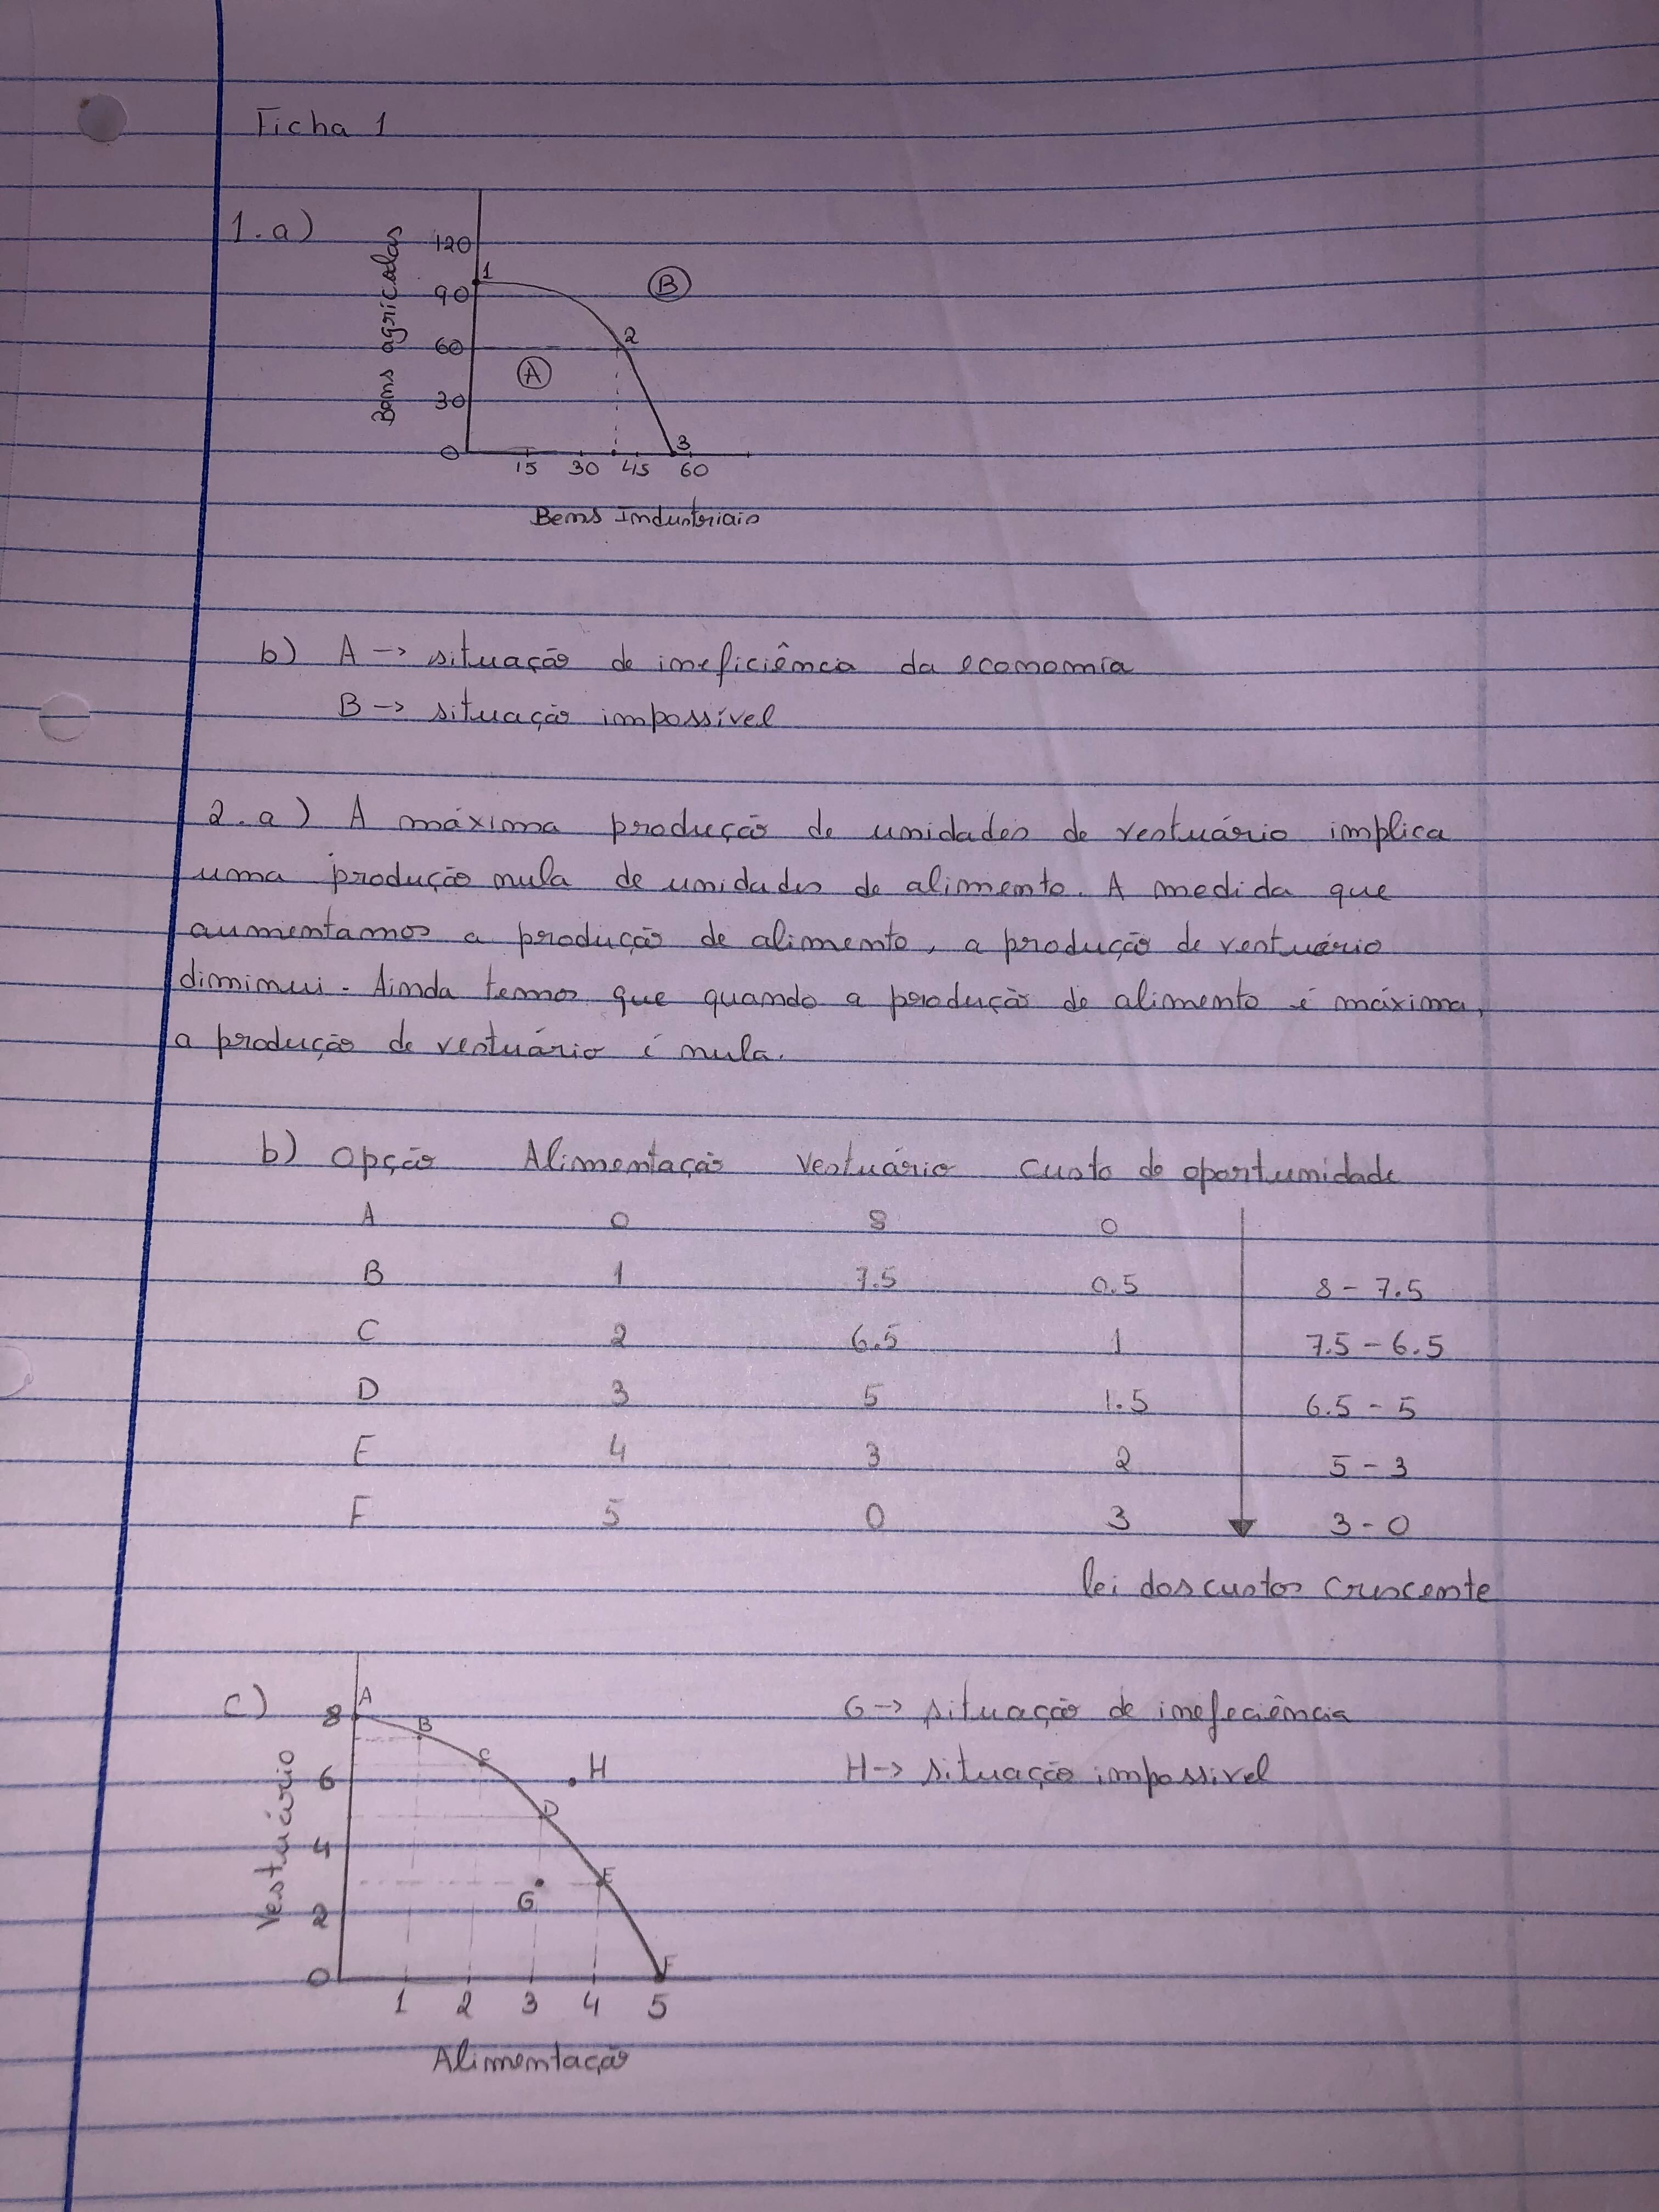 Ficha 1
1.a)
Bens agrícolas
120
90
60
30
0
1
2
3
A
B
15 30 45 60
Bens Industriais
b) A -> situação de ineficiência da economia
B -> situação impossível
2.a) A máxima produção de unidades de vestuário implica
uma produção nula de unidades de alimento. A medida que
aumentamos a produção de alimento, a produção de vestuário
diminui. Ainda temos que quando a produção de alimento é máxima,
a produção de vestuário é nula.
b) Opção Alimentação Vestuário custo de oportunidade
A 0 8 0
B 1 7.5 0.5 8 - 7.5
C 2 6.5 1 7.5 - 6.5
D 3 5 1.5 6.5 - 5
E 4 3 2 5 - 3
F 5 0 3 3 - 0
lei dos custos crescente
c)
Vestuário
8
6
4
2
0
A
B
C
D
E
F
G
H
1 2 3 4 5
Alimentação
G -> situação de inefeciência
H -> situação impossivel